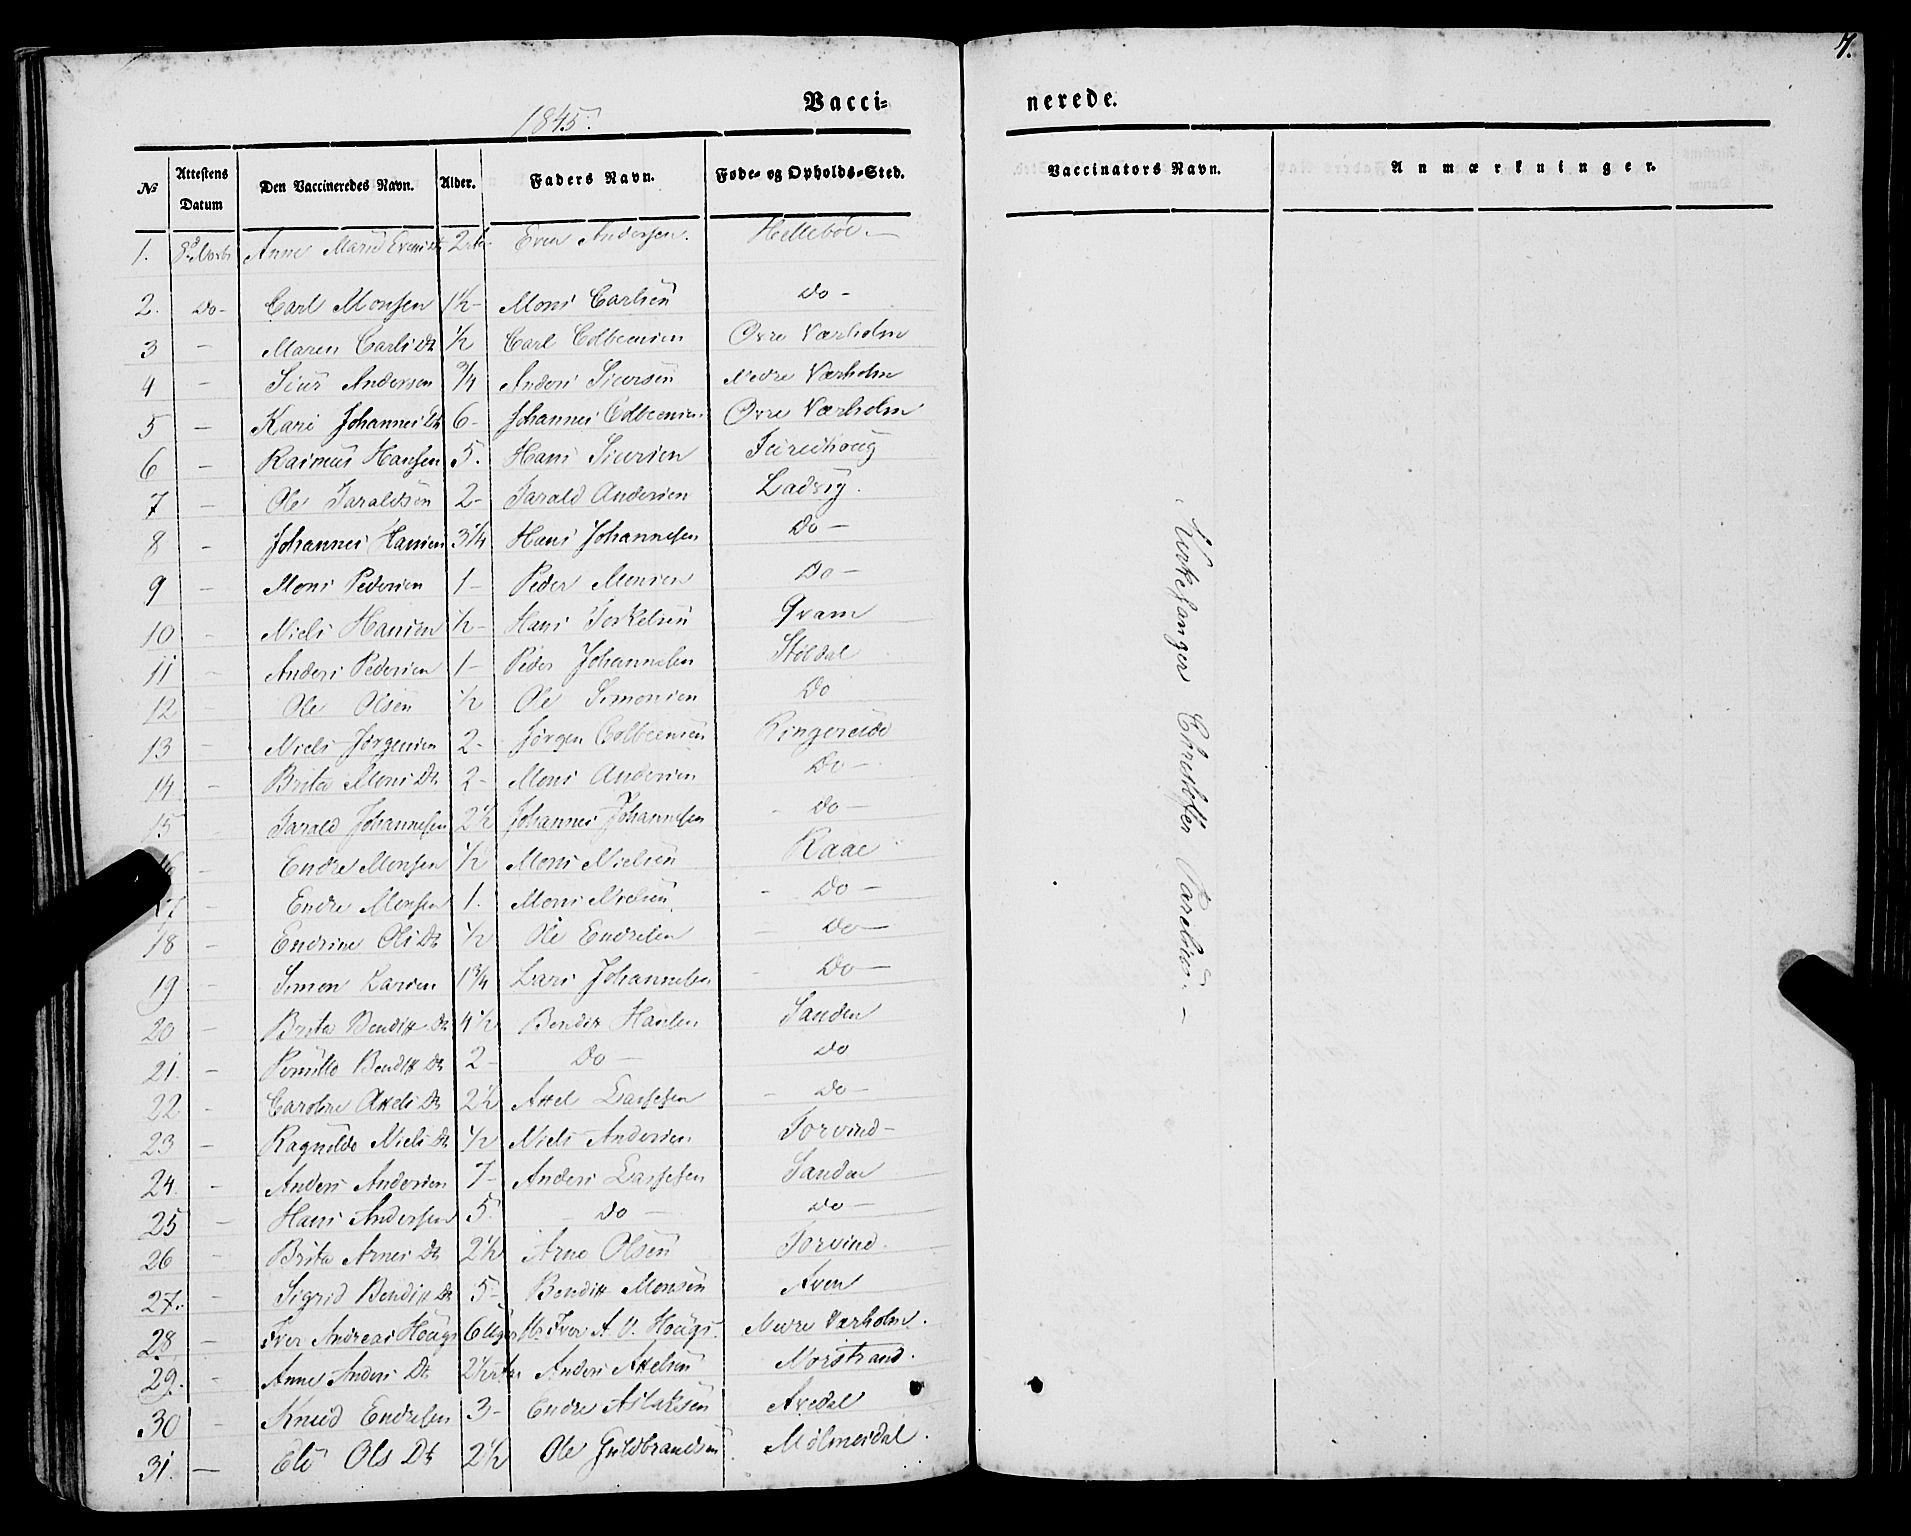 7.
1845.
Vacci= nerede.
№ Attestens Datum Den Vaccineredes Navn. Alder. Faders Navn. Føde- og Opholds-Sted. Vaccinators Navn. Anmærkninger.
1. Anne Marie Evens Dt 2 Even Andersen. Hellebøe -
2. Do- Carl Monsen 1½- Mons Carlsen Do -
3 - Maren Carls Dt ½ Carl Colbeensen Øvre Værholm
4 - Siur Andersen ¾ Anders Siursen Nedre Værholm
5 - Kari Johannes Dt 6- Johannes Colbeensen Øvre Værholm
6 - Rasmus Hansen 5. Hans Siursen Furedhoug
7 - Ole Taraldsen 2- Tarald Andersen Ladvig.
8 - Johannes Hansen 3¼ Hans Johannesen Do -
9 - Mons Pedersen 1- Peder Monsen Do -
10 - Niels Hansen ½- Hans Torkelsen Qvam
11 - Anders Pedersen 1- Peder Johannesen Støldal
12 - Ole Olsen ½ Ole Simonsen Do
13 - Niels Jørgensen 2- Jørgen Colbeensen Ringereide
14 - Brita Mons Dt 2- Mons Andersen Do -
15 Tarald Johannesen 2½ Johannes Johannesen - Do -
16 - Endre Monsen ½ Mons Nielsen Raae
17 - Endre Monsen 1. Mons Nielsen - Do -
18 - Endrine Ols Dt ½ Ole Endresen - Do -
19 - Simon Larsen 1¾ Lars Johannesen - Do -
20 - Brita Bendix Dt 4½ Bendix Hansen Sanden
21. - Pernille Bendix Dt 2- Do - Do
22 - Caroline Axels Dt 2½ Axel Lassesen - Do -
23 - Ragnilde Niels Dt ½ Niels Andersen Torvind -
24. - Anders Andersen 7- Anders Lassesen Sanden
25 - Hans Andersen 5. - Do - Do -
26 - Brita Arnes Dt 2½ Arne Olsen Torvind.
27. - Sigrid Bendix Dt 5- Bendix Monsen Aven
28 - Iver Andreas Hougs 6 Uger Iver A. V. Hougs. Nedre Værholm.
29. - Anne Anders Dt 2½ Anders Axelsen Norstrand.
30 - Knud Endresen 3- Endre Aslaksen Avedal
31. - Eli Ols Dt 2½ Ole Guldbrandsen. Mølmesdal.
Kirkesanger Christoffer -